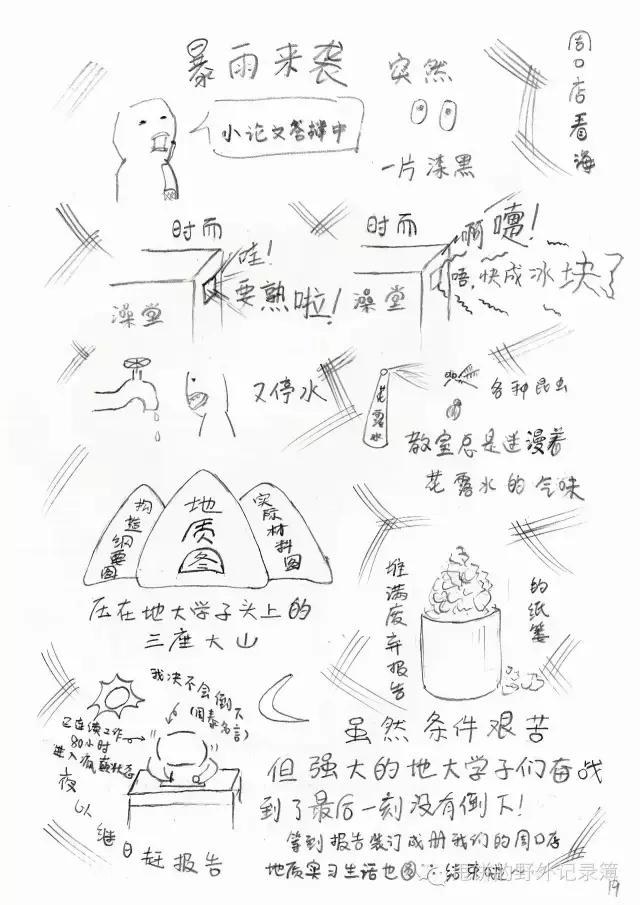 暴雨来袭
突然
周口店看海
小论文答辩中
一片漆黑
时而
哇!
要熟啦!
澡堂
时而
啊嚏!
唔,快成冰块了
澡堂
又停水
花露水
各种昆虫
教室总是迷漫着
花露水的气味
构造纲要图
地质图
实际材料图
压在地大学子头上的
三座大山
堆满废弃报告
的纸篓
我决不会倒下
(周泰名言)
已连续工作
80小时
进入疯癫状态
夜以
继日赶报告
虽然条件艰苦
但强大的地大学子们奋战
到了最后一刻没有倒下!
等到报告装订成册我们的周口店
地质实习生活也圆
结束啦
的野外记录簿
19